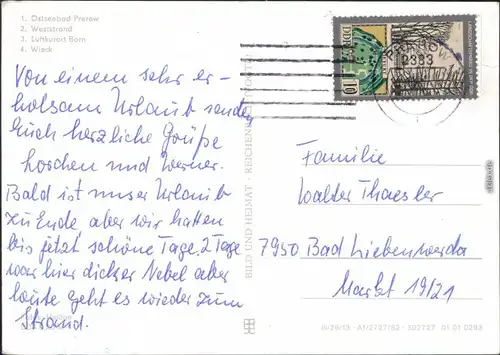 1. Ostseebad Prerow
2. Weststrand
3. Luftkurort Born
4. Wieck
Von einem sehr er-
holsamen Urlaub senden
Euch herzliche Grüße
und Werner.
Bald ist unser Urlaub
zu Ende, aber wir hatten
bis jetzt schöne Tage. 2 Tage
war hier dicker Nebel aber
heute geht es wieder zum
Strand.
BILD UND HEIMAT · REICHENBACH
DDR
10
2383
Familie
Walter Thaesler
7950 Bad Liebenwerda
Markt 19/21
A1/2727/82 302727 01 01 0293